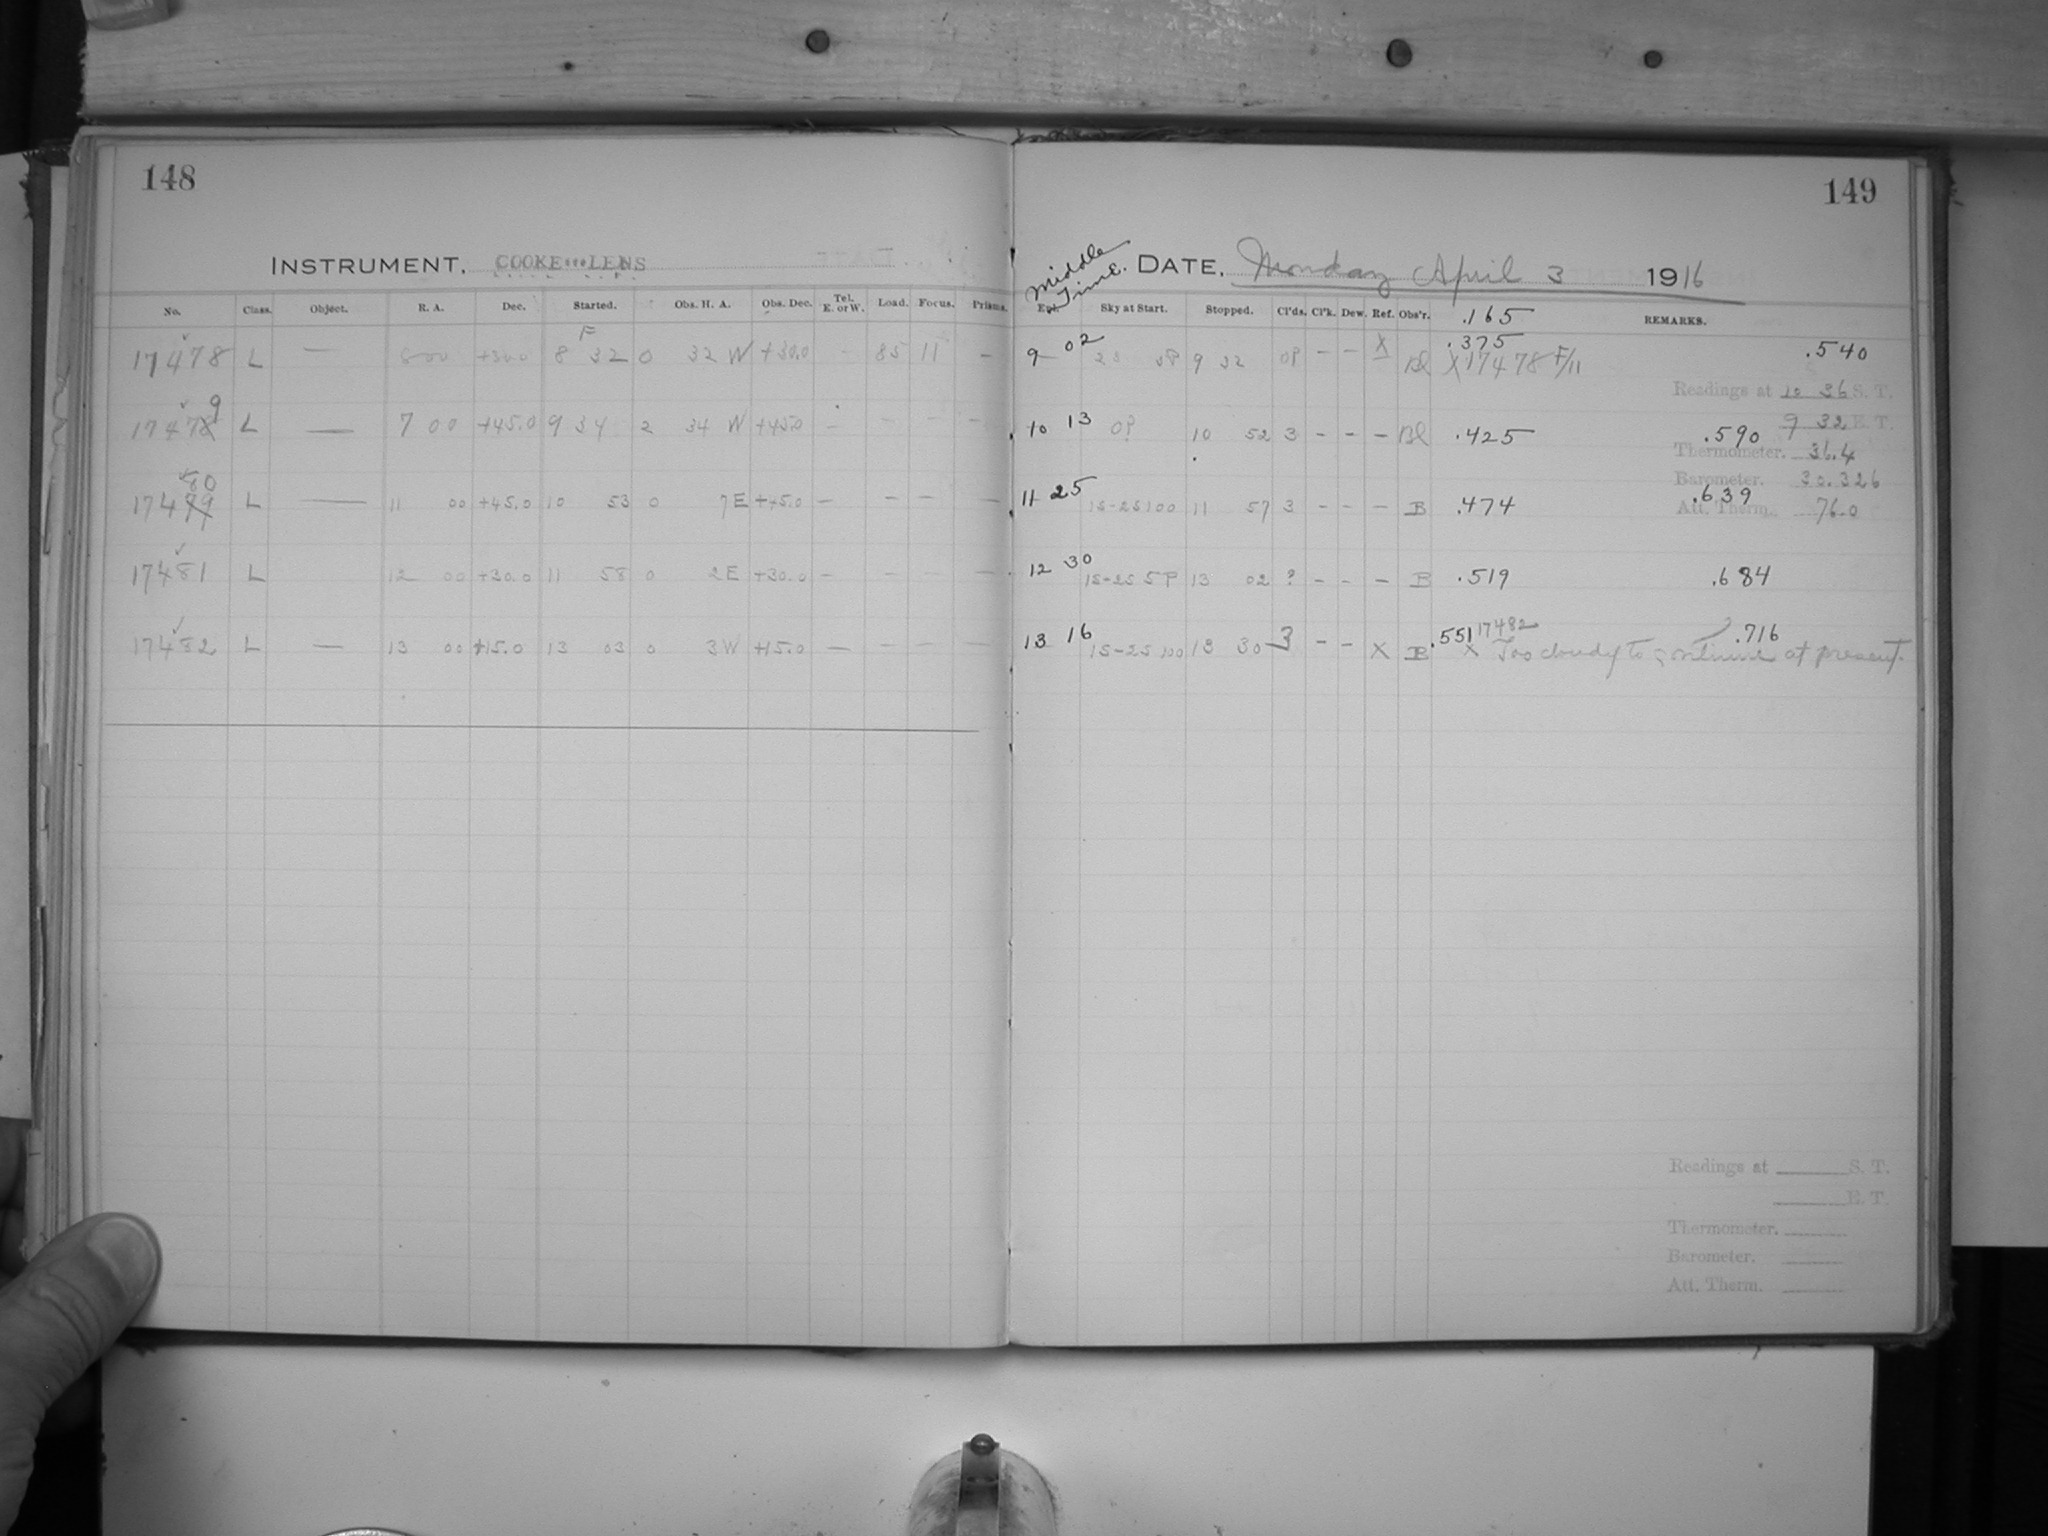 148
INSTRUMENT. COOKE LENS
No. Class. Object. R. A. Dec. Started. Obs. H. A. Obs. Dec. Tel. E. or W. Load. Focus. Prisms.
F
17478 L — +30.0 8 32 0 32 W +30.0 - 85 11 -
9
1747 L — 7 00 +45.0 9 34 2 34 W +45.0 - - -
80
17479 L — 11 00 +45.0 10 53 0 7 E +45.0 - - - -
17481 L 12 00 +30.0 11 58 0 2 E +30.0 - - - -
17482 L — 13 00 +15.0 13 03 0 3 W +15.0 - - - -
149
Middle Time. DATE. Monday April 3 1916
Sky at Start. Stopped. Cl'ds. Cl'k. Dew. Ref. Obs'r. .165 REMARKS.
9 02 9 32 - - X Bl .375 .540
X 17478 F/11
Readings at 10 36 S. T.
9 32 E. T.
10 13 10 52 3 - - - Bl .425 .590
Thermometer. 36.4
Barometer. 30.326
11 25 1S-2S 100 11 57 3 - - - B .474 .639
Att. Therm. 76.0
12 30 1S-2S 5P 13 02 ? - - - B .519 .684
13 16 1S-2S 100 13 30 3 - - X B .551 17482 .716
X Too cloudy to continue at present.
Readings at S. T.
E. T.
Thermometer.
Barometer.
Att. Therm.